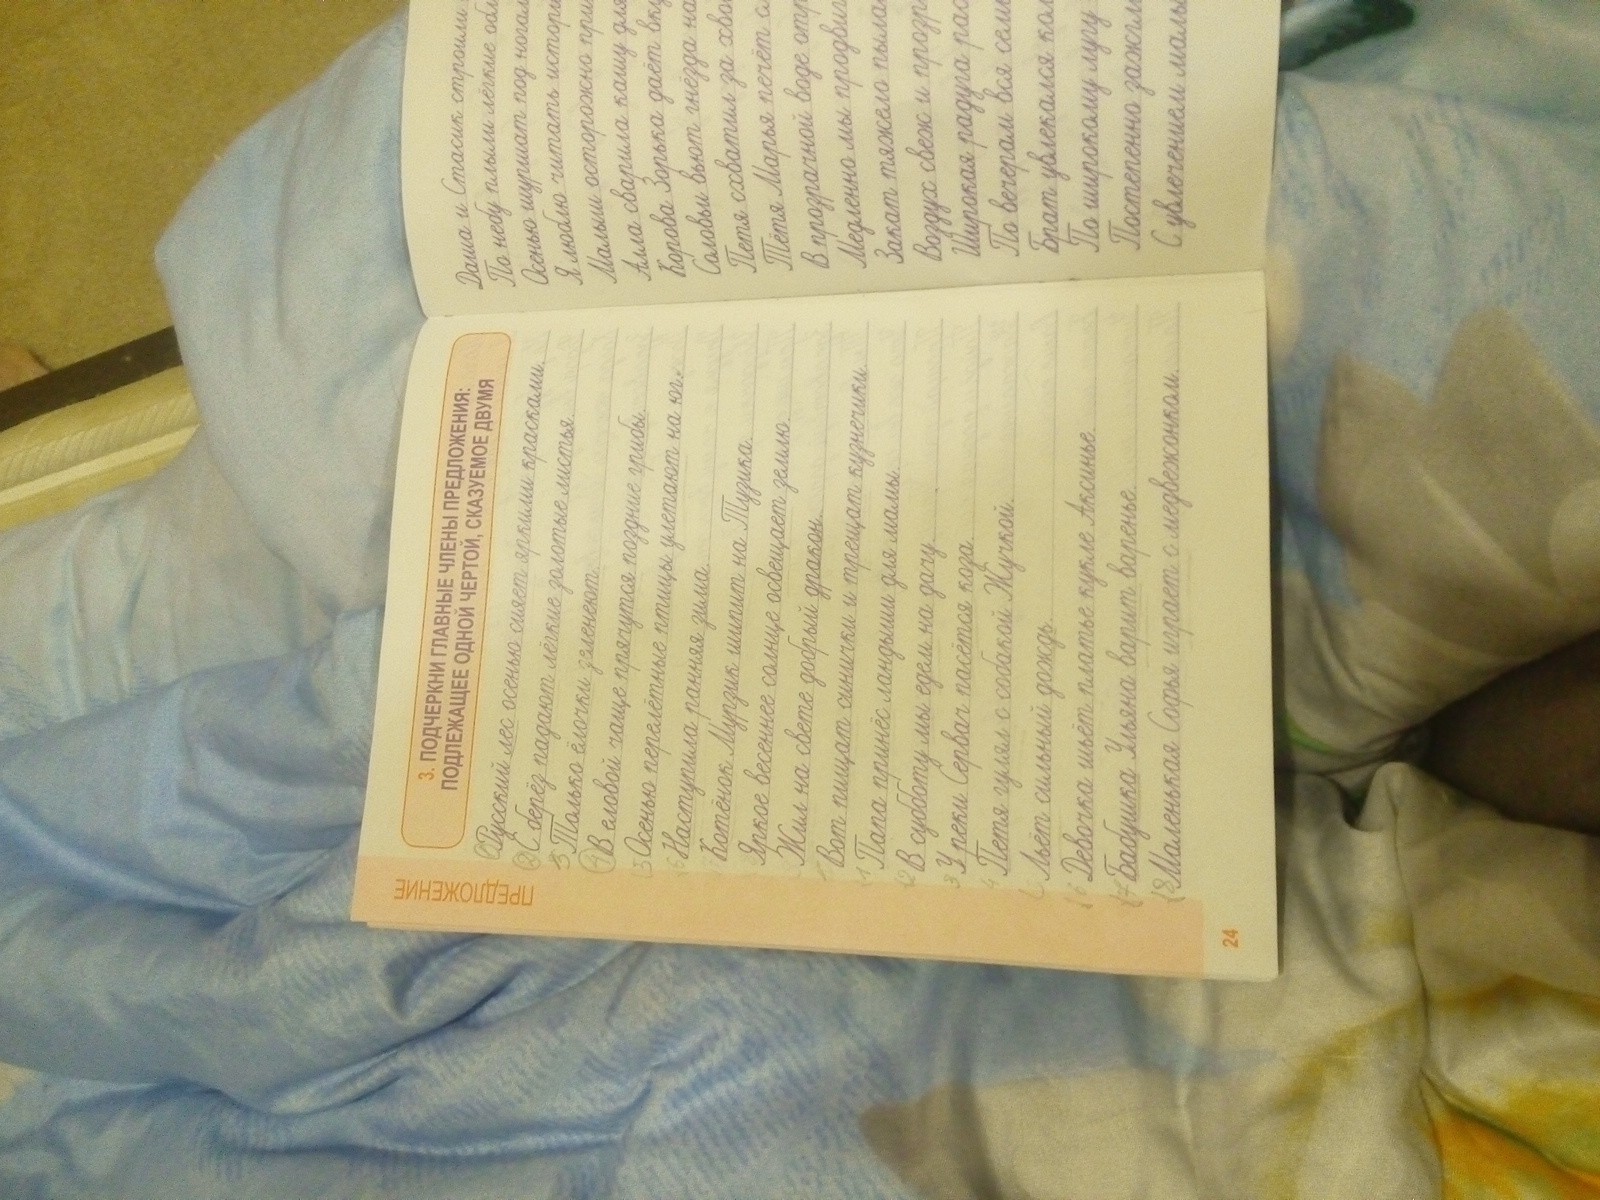 ПРЕДЛОЖЕНИЕ
3. ПОДЧЕРКНИ ГЛАВНЫЕ ЧЛЕНЫ ПРЕДЛОЖЕНИЯ:
ПОДЛЕЖАЩЕЕ ОДНОЙ ЧЕРТОЙ, СКАЗУЕМОЕ ДВУМЯ
1 Русский лес осенью сияет яркими красками.
2 С берёз падают лёгкие золотые листья.
3 Только ёлочки зеленеют.
4 В еловой чаще прячутся поздние грибы.
5 Осенью перелётные птицы улетают на юг.
6 Наступила ранняя зима.
Котёнок Мурзик шипит на Тузика.
Яркое весеннее солнце освещает землю.
Жил на свете добрый дракон.
Вот пищат синички и трещат кузнечики.
11 Папа принёс ландыши для мамы.
12 В субботу мы едем на дачу.
3 У реки Сервач пасётся коза.
4 Петя гулял с собакой Жучкой.
Льёт сильный дождь.
16 Девочка шьёт платье кукле Аксинье.
17 Бабушка Ульяна варит варенье.
18 Маленькая Софья играет с медвежонком.
24
Даша и Стасик строили
По небу плыли лёгкие обл
Осенью шуршат под ногам
Я люблю читать истори
Малыши осторожно при
Алла сварила кашу для
Корова Зорька даёт вку
Соловьи вьют гнёзда на
Петя схватил за хво
Тётя Марья печёт сл
В прозрачной воде отр
Медленно мы продвига
Закат тяжело пыла
Воздух свеж и прозра
Широкая радуга рас
По вечерам вся сем
Брат увлекался кол
По широкому лугу
Постепенно зажгли
С увлечением малы